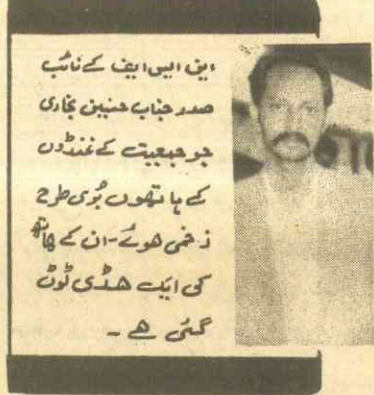 این ایس ایف کے نائب
صدر جناب حسنین بخاری
جو جمعیت کے غنڈوں
کے ہاتھوں بُری طرح
زخمی ہوئے - ان کے ہاتھ
کی ایک ہڈی ٹوٹ
گئی ہے -